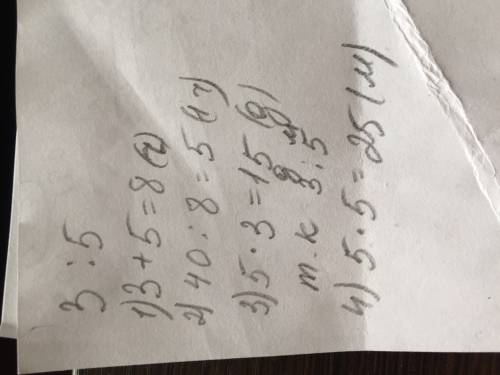 3 : 5
1) 3 + 5 = 8 (ч)
2) 40 : 8 = 5 (1ч)
3) 5 · 3 = 15 (д)
д м
т.к 3 : 5
4) 5 · 5 = 25 (м)